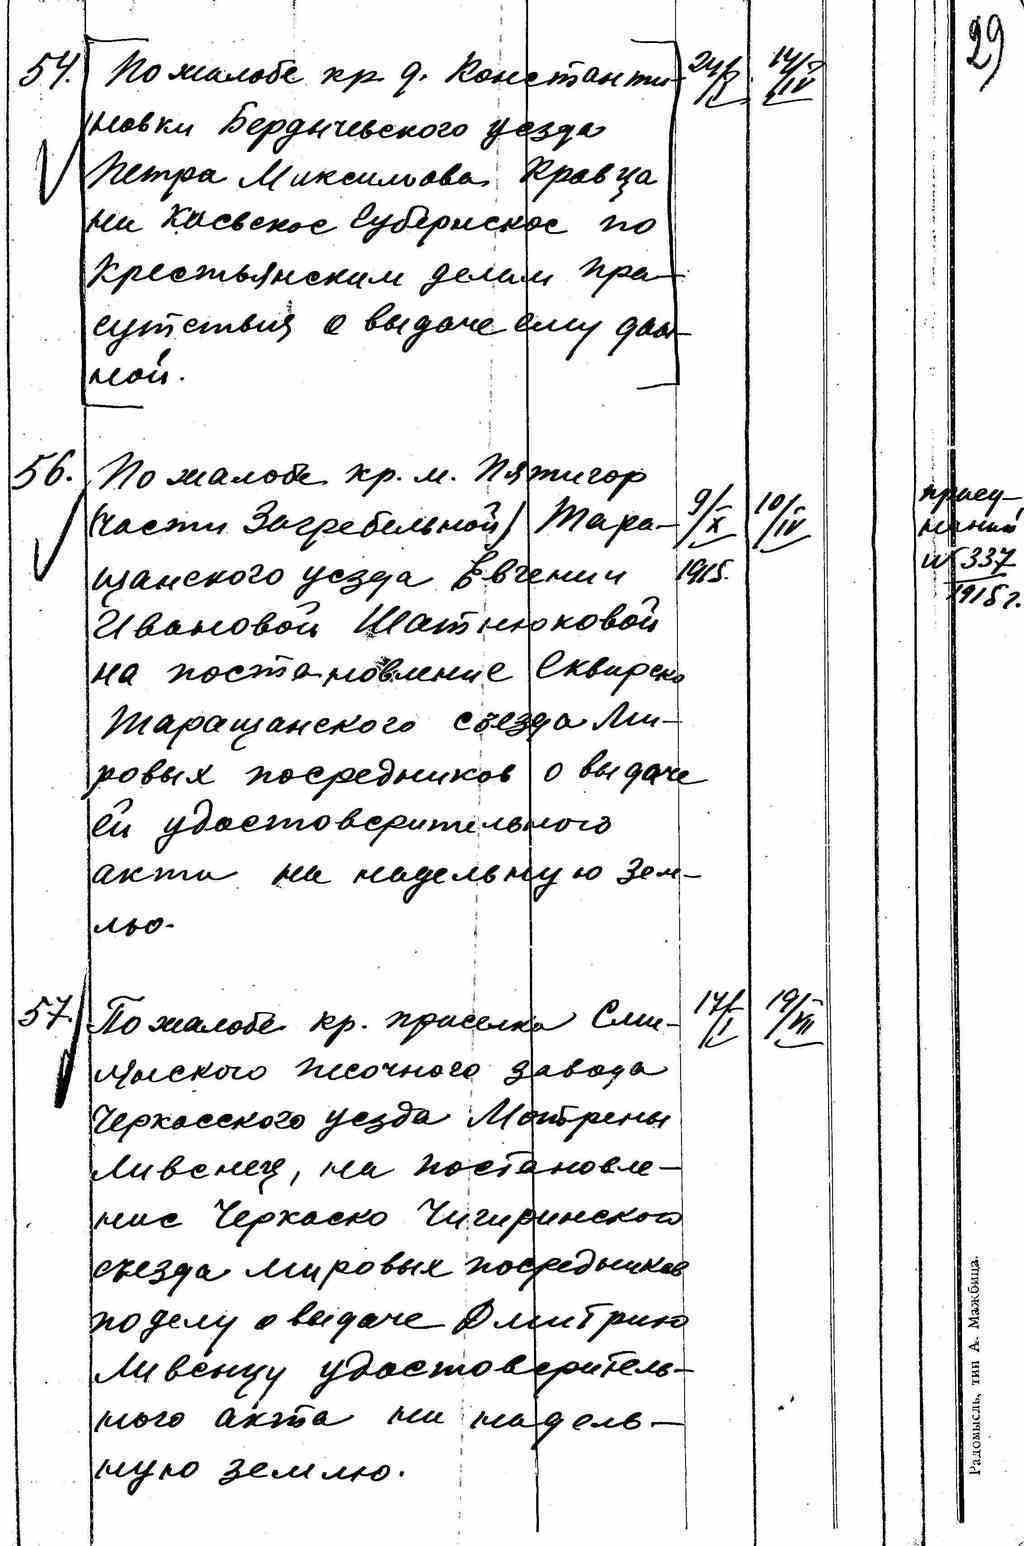 29
54. По жалобе кр. д. Константи- 24/I 14/IV
новки Бердичевского уезда
Петра Максимова Кравца
на Киевское Губернское по
Крестьянским делам При-
сутствия о выдаче ему дан-
ной.
56. По жалобе кр. м. Пятигор
(части Загребельной) Тара- 9/X 1915. 10/IV
щанского уезда Евгении
Ивановой Шатнюковой
на постановление Сквирско
Таращанского съезда Ми-
ровых посредников о выдаче
ей удостоверительного
акта на надельную зем-
лю.
№ 337
1915 г.
57. По жалобе кр. приселка Сми- 17/I 19/VII
лянского песочного завода
Черкасского уезда Мотрены
Ливенец, на постановле-
ние Черкаско Чигиринского
съезда мировых посредников
по делу о выдаче Дмитрию
Ливенцу удостоверитель-
ного акта на надель-
ную землю.
Радомысль, тип А. Мажбица.